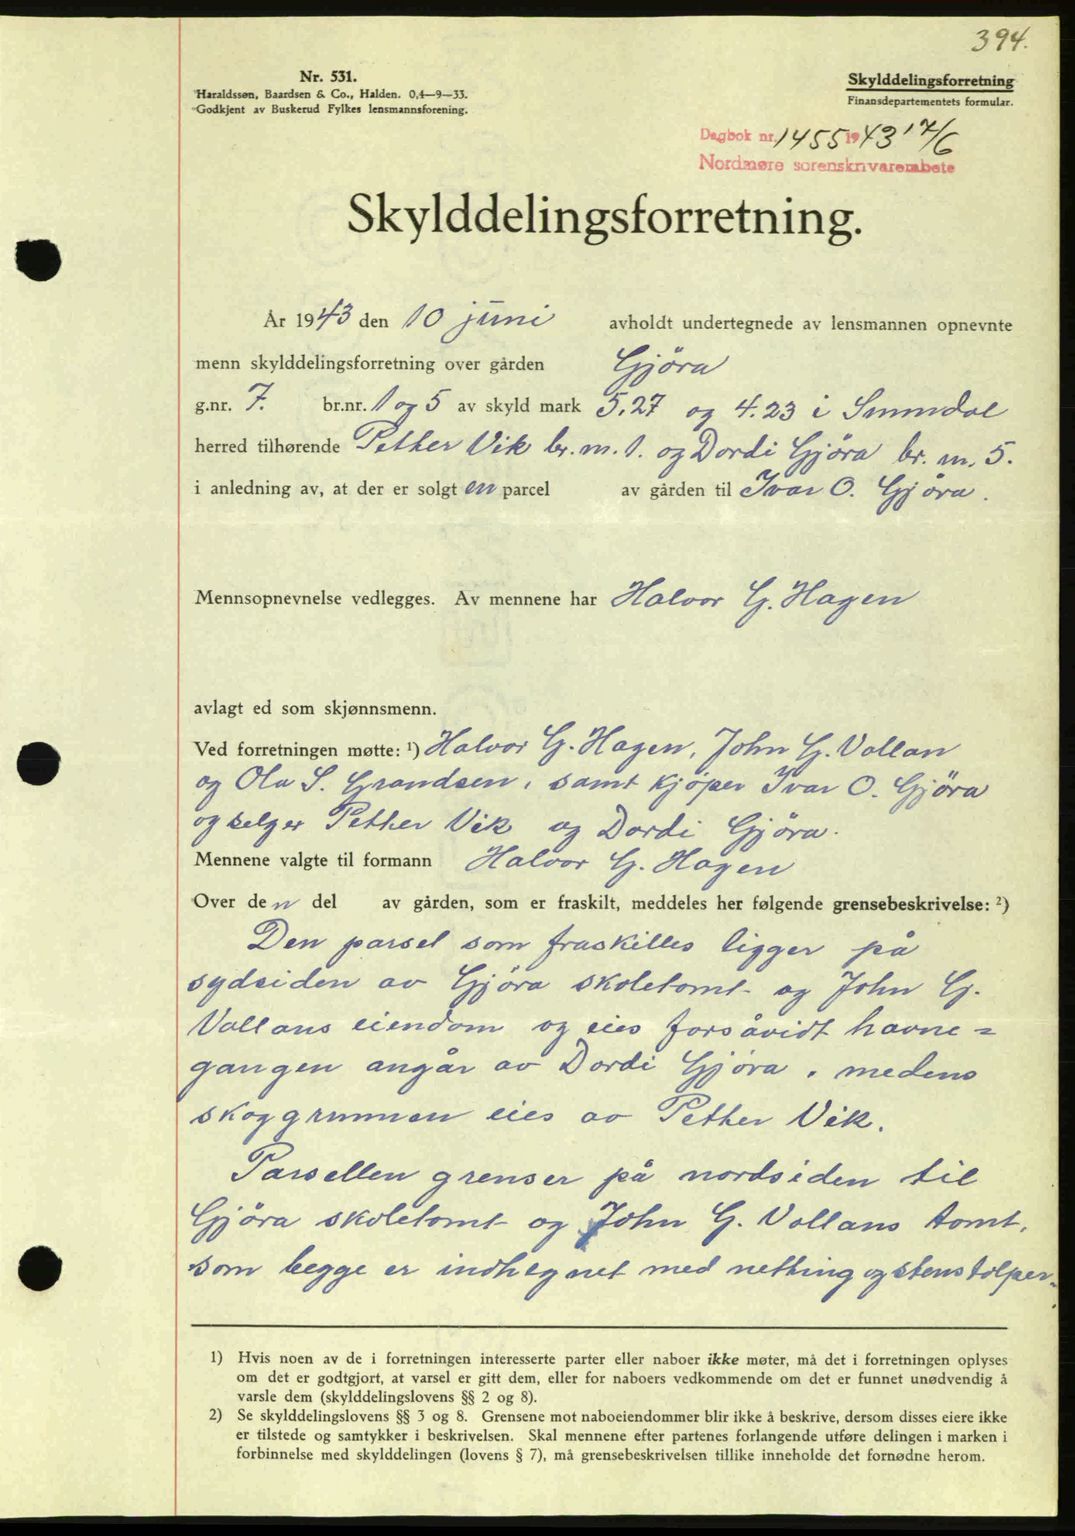 394.
Nr. 531.
Haraldssøn, Baardsen & Co., Halden. 0,4—9—33.
Godkjent av Buskerud Fylkes lensmannsforening.
Skylddelingsforretning
Finansdepartementets formular.
Dagbok nr. 1455 1943 17/6
Nordmøre sorenskriverembete
Skylddelingsforretning.
År 1943 den 10 juni avholdt undertegnede av lensmannen opnevnte
menn skylddelingsforretning over gården Gjöra
g.nr. 7. br.nr. 1 og 5 av skyld mark 5.27 og 4.23 i Sunndal
herred tilhørende Pether Vik br. nr. 1. og Dordi Gjöra br. nr. 5.
i anledning av, at der er solgt en parcel av gården til Ivar O. Gjöra.
Mennsopnevnelse vedlegges. Av mennene har Halvor G. Hagen
avlagt ed som skjønnsmenn.
Ved forretningen møtte: ¹) Halvor G. Hagen, John G. Vollan
og Ola S. Grandsen, samt kjöper Ivar O. Gjöra
og selger Pether Vik og Dordi Gjöra.
Mennene valgte til formann Halvor G. Hagen
Over den del av gården, som er fraskilt, meddeles her følgende grensebeskrivelse: ²)
Den parsel som fraskilles ligger på
sydsiden av Gjöra skoletomt og John G.
Vollans eiendom og eies forsåvidt havne=
gangen angår av Dordi Gjöra, medens
skoggrunnen eies av Pether Vik.
Parsellen grenser på nordsiden til
Gjöra skoletomt og John G. Vollans tomt,
som begge er indhegnet med netting og stenstolper.
1) Hvis noen av de i forretningen interesserte parter eller naboer ikke møter, må det i forretningen oplyses
om det er godtgjort, at varsel er gitt dem, eller for naboers vedkommende om det er funnet unødvendig å
varsle dem (skylddelingslovens §§ 2 og 8).
2) Se skylddelingslovens §§ 3 og 8. Grensene mot naboeiendommer blir ikke å beskrive, dersom disses eiere ikke
er tilstede og samtykker i beskrivelsen. Skal mennene efter partenes forlangende utføre delingen i marken i
forbinnelse med skylddelingen (lovens § 7), må grensebeskrivelsen tillike inneholde det fornødne herom.